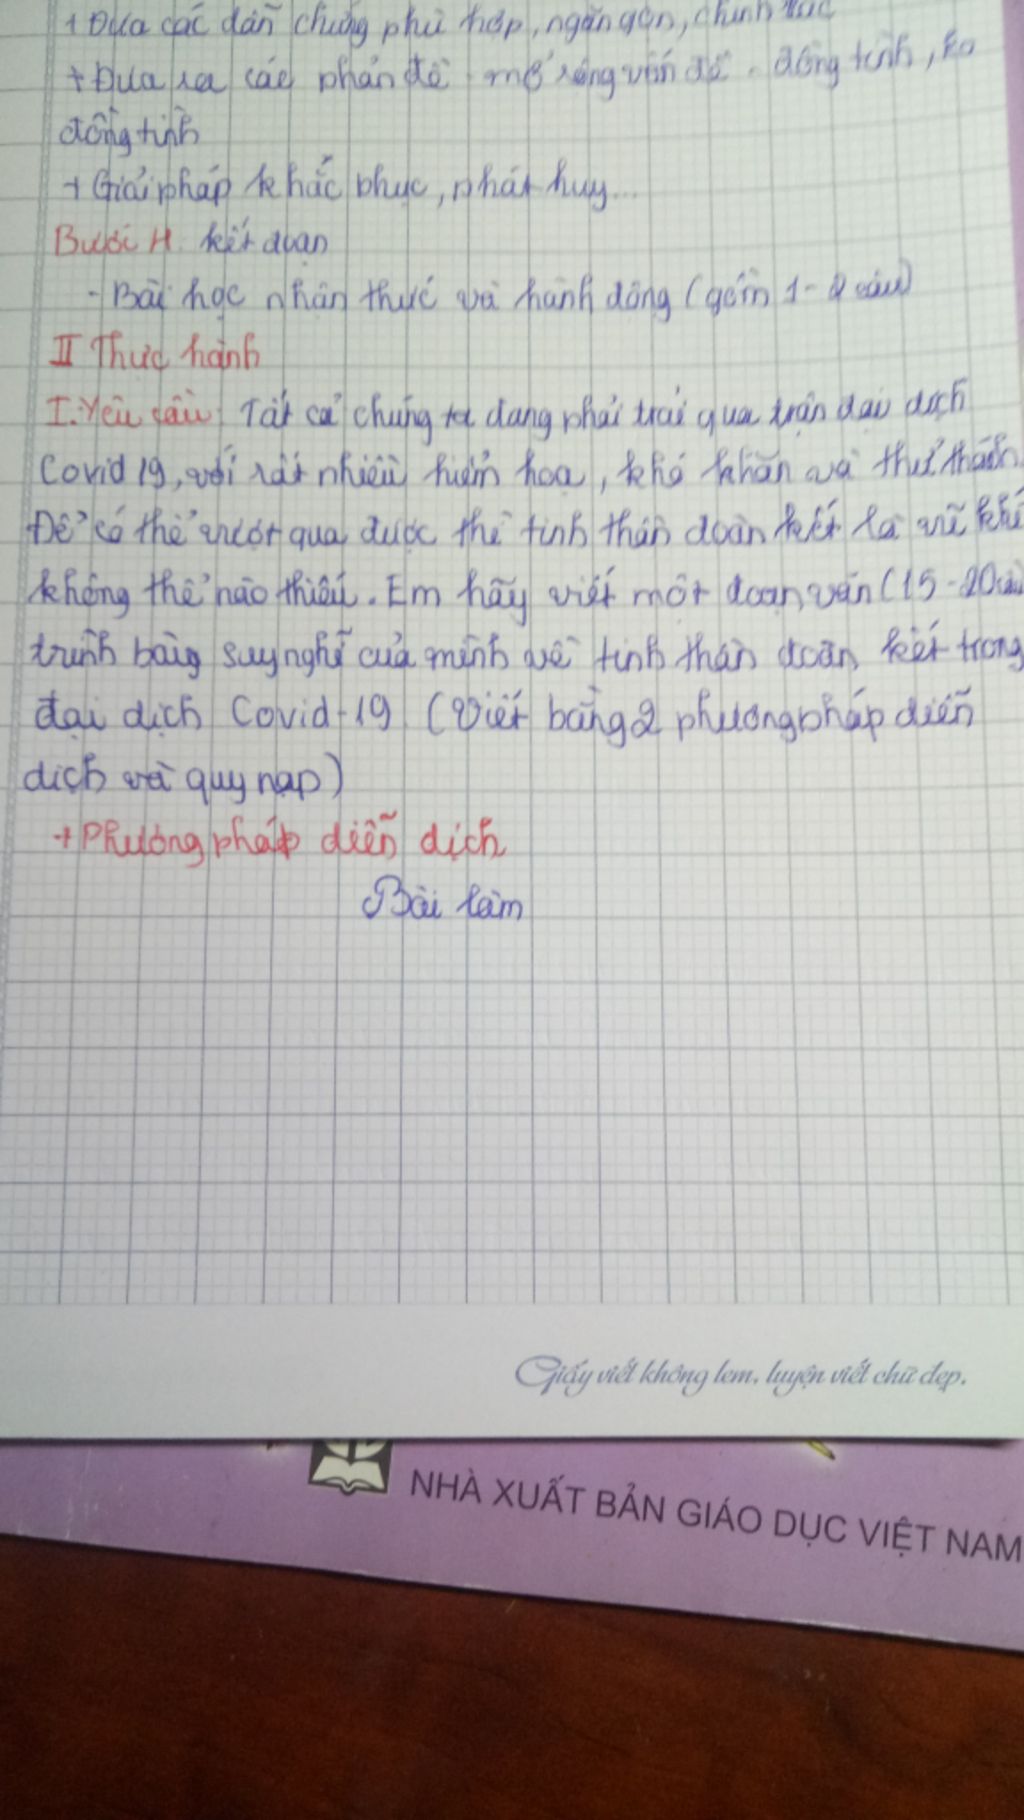 + Đưa các dẫn chứng phù hợp, ngắn gọn, chính xác
+ Đưa ra các phản đề mở rộng vấn đề. đồng tình, ko
đồng tình
+ Giải pháp khắc phục, phát huy...
Bước 4: kết đoạn
- Bài học nhận thức và hành động (gồm 1-2 câu)
II Thực hành
I. Yêu cầu: Tất cả chúng ta đang phải trải qua trận đại dịch
Covid 19, với rất nhiều hiểm họa, khó khăn và thử thách.
Để có thể vượt qua được thì tinh thần đoàn kết là vũ khí
không thể nào thiếu. Em hãy viết một đoạn văn (15-20 câu)
trình bày suy nghĩ của mình về tinh thần đoàn kết trong
đại dịch Covid-19 (Viết bằng 2 phương pháp diễn
dịch và quy nạp)
+ Phương pháp diễn dịch
Bài làm
Giấy viết không lem, luyện viết chữ đẹp.
NHÀ XUẤT BẢN GIÁO DỤC VIỆT NAM